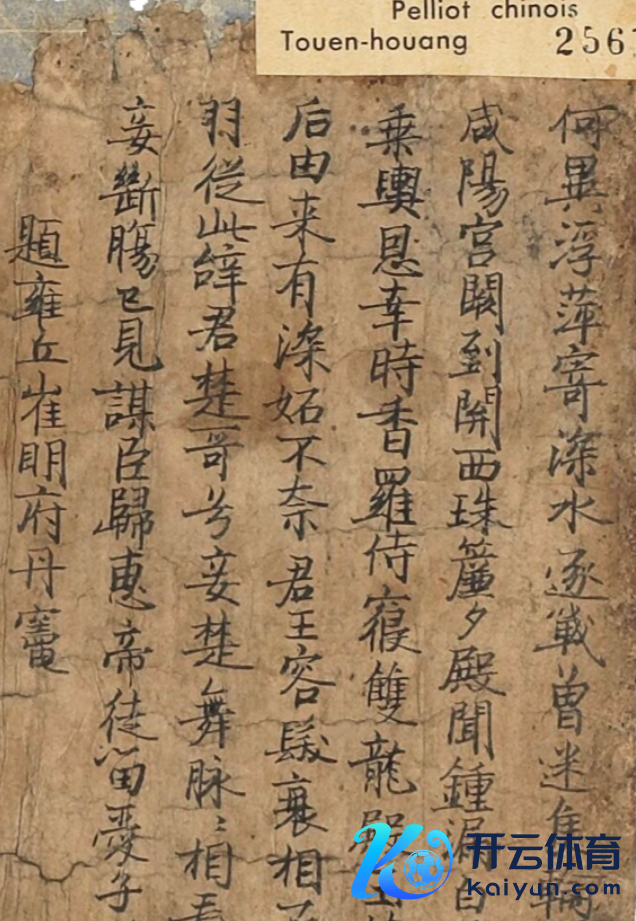 Pelliot chinois
Touen-houang 256
何異浮萍寄深水逐戰曾迷隻輪
咸陽宮闕到關西珠簾夕殿聞鍾漏白
乘輿恩幸時香羅侍寢雙龍殿玉
后由来有深妬不奈君王容髮衰相
羽從此辞君楚哥兮妾楚舞脉〻相看
妾斷腸已見謀臣歸惠帝徒留愛子
題雍丘崔明府丹竈
开云体育
kaiyun.com